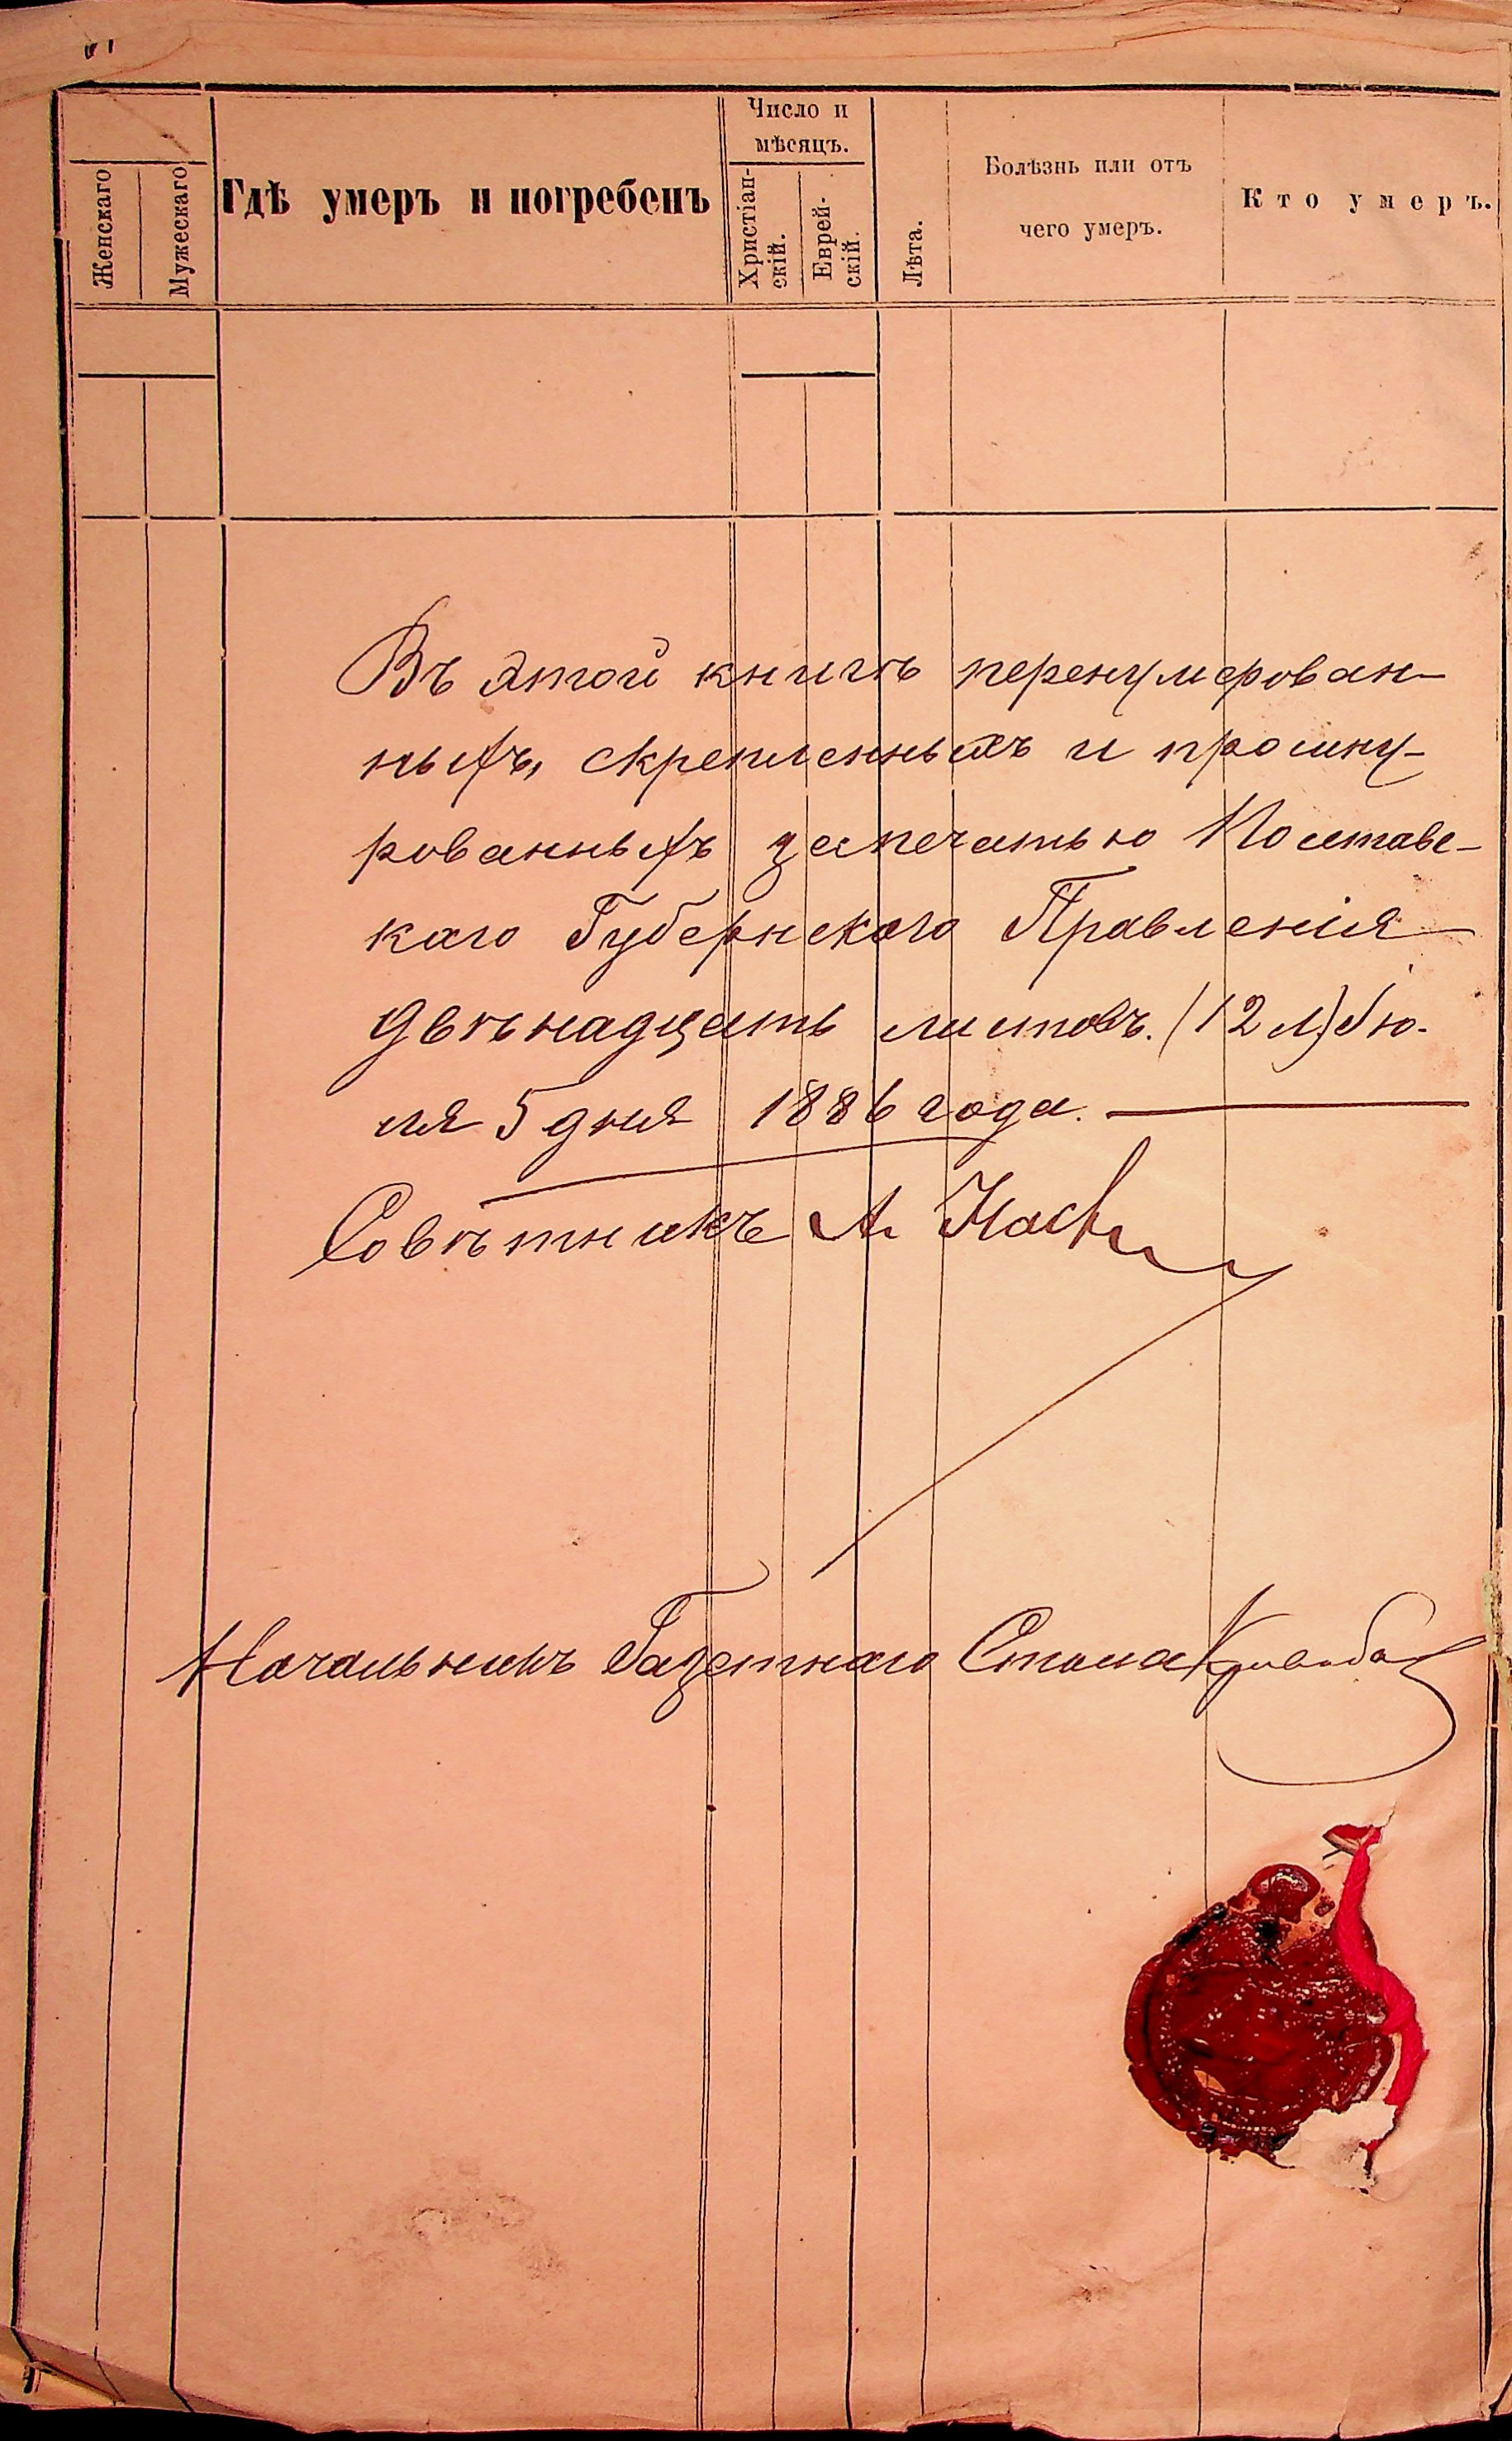 Число и
мѣсяцъ.
Женскаго
Мужескаго
Гдѣ умеръ и погребенъ
Христіан-
скій.
Еврей-
скій.
Лѣта.
Болѣзнь или отъ
чего умеръ.
Кто умеръ.
Въ этой книгѣ перенумерован-
ныхъ, скрепленныхъ и прошну-
рованныхъ за печатью Полтавс-
каго Губернскаго Правленія
двѣнадцать листовъ. (12 л) Ію-
ля 5 дня 1886 года.
Совѣтникъ А.
Начальникъ Газетнаго Стола